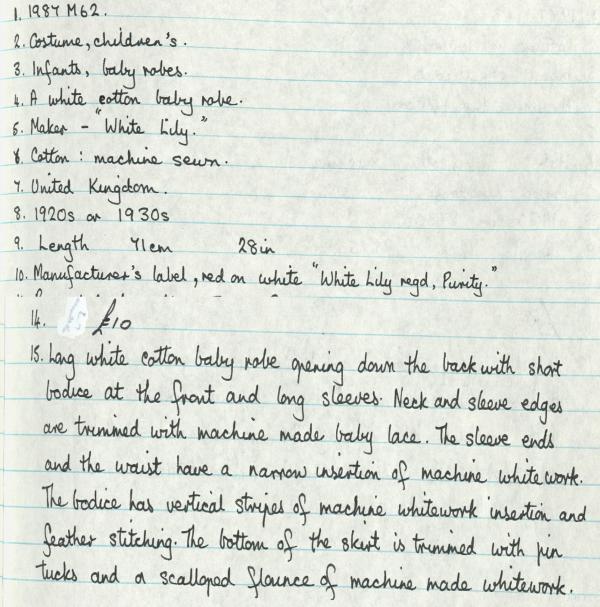 1. 1987 M62.
2. Costume, children's.
3. Infants, baby robes.
4. A white cotton baby robe.
5. Maker - "White Lily."
6. Cotton: machine sewn.
7. United Kingdom.
8. 1920s or 1930s
9. Length 71cm 28in
10. Manufacturer's label, red on white "White Lily regd, Purity."
14. £10
15. Long white cotton baby robe opening down the back with short
bodice at the front and long sleeves. Neck and sleeve edges
are trimmed with machine made baby lace. The sleeve ends
and the waist have a narrow insertion of machine whitework.
The bodice has vertical stripes of machine whitework insertion and
feather stitching. The bottom of the skirt is trimmed with pin
tucks and a scalloped flounce of machine made whitework.